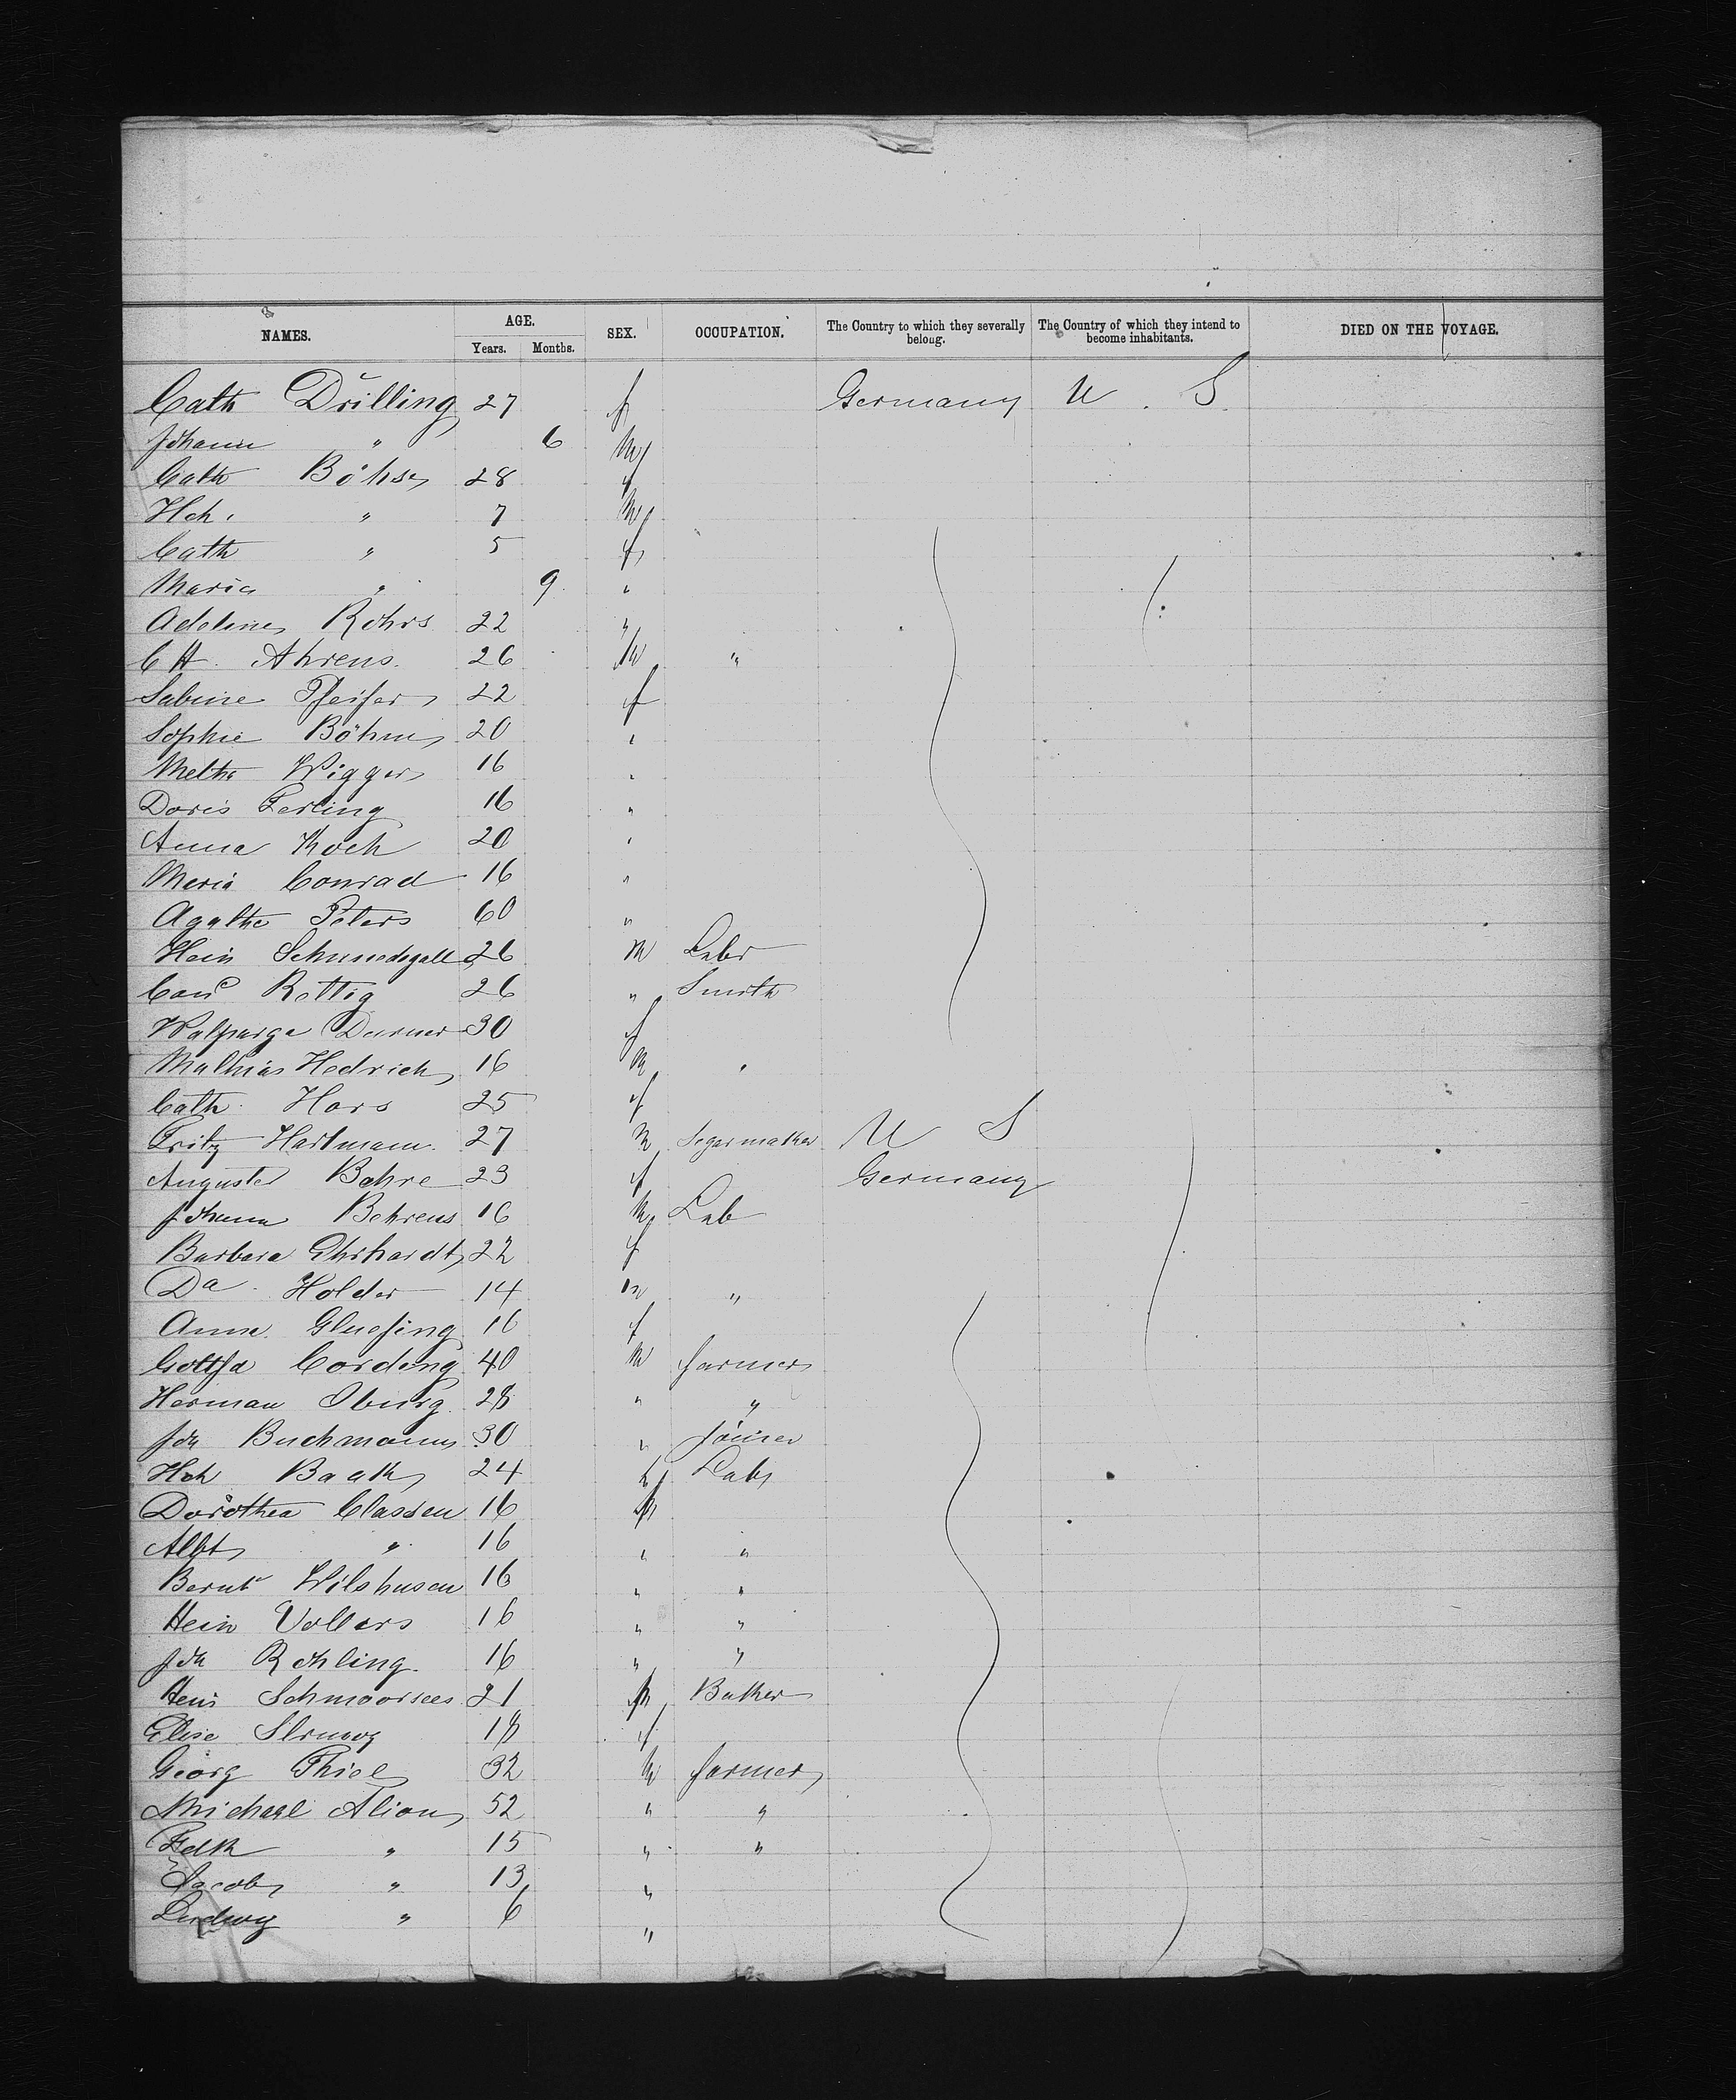 NAMES. AGE. SEX. OCCUPATION. The Country to which they severally belong. The Country of which they intend to become inhabitants. DIED ON THE VOYAGE.
Years. Months.
Cath Drilling 27 f Germany U. S.
Johann " 6 m
Cath Böhse 28 f
Hch. " 7 m
Cath " 5 f
Maria " 9 "
Adeline Rohrs 22 "
C H. Ahrens. 26 m "
Sabine Pfeifer 22 f
Sophie Böhm 20 "
Metha Wigger 16 "
Doris Ferling 16 "
Anna Koch 20 "
Meria Conrad 16 "
Agathe Peters 60 "
Hein 26 m Labr
Rettig 26 " Smith
Walparga 30 f
Mathias Hedrich 16 m "
Cath. Hors 25 f
Fritz Hartmann. 27 m Segarmaker U S
Auguste Bahre 23 f Germany
Johann Behrens 16 m Lab
Barbara Ehrhardt 22 f
Da. Holder 14 m "
Anna Gluesing 16 f
Gottfd Cordeng 40 m farmer
Herman Oburg. 28 " "
Joh Buchmann 30 " Joiner
Hch Baak 24 " Lab
Dorothea Classen 16
Albt " 16 " "
Bernt Wilshusen 16 " "
Hein Vollers 16 " "
Joh Rohling. 16 " "
Hein Schmoorsees 21 m Baker
Elise 18 f
Georg Thiel 32 m farmer
Michael Alion 52 " "
Fedk " 15 " "
Jacob " 13 "
Ludwig " 6 "